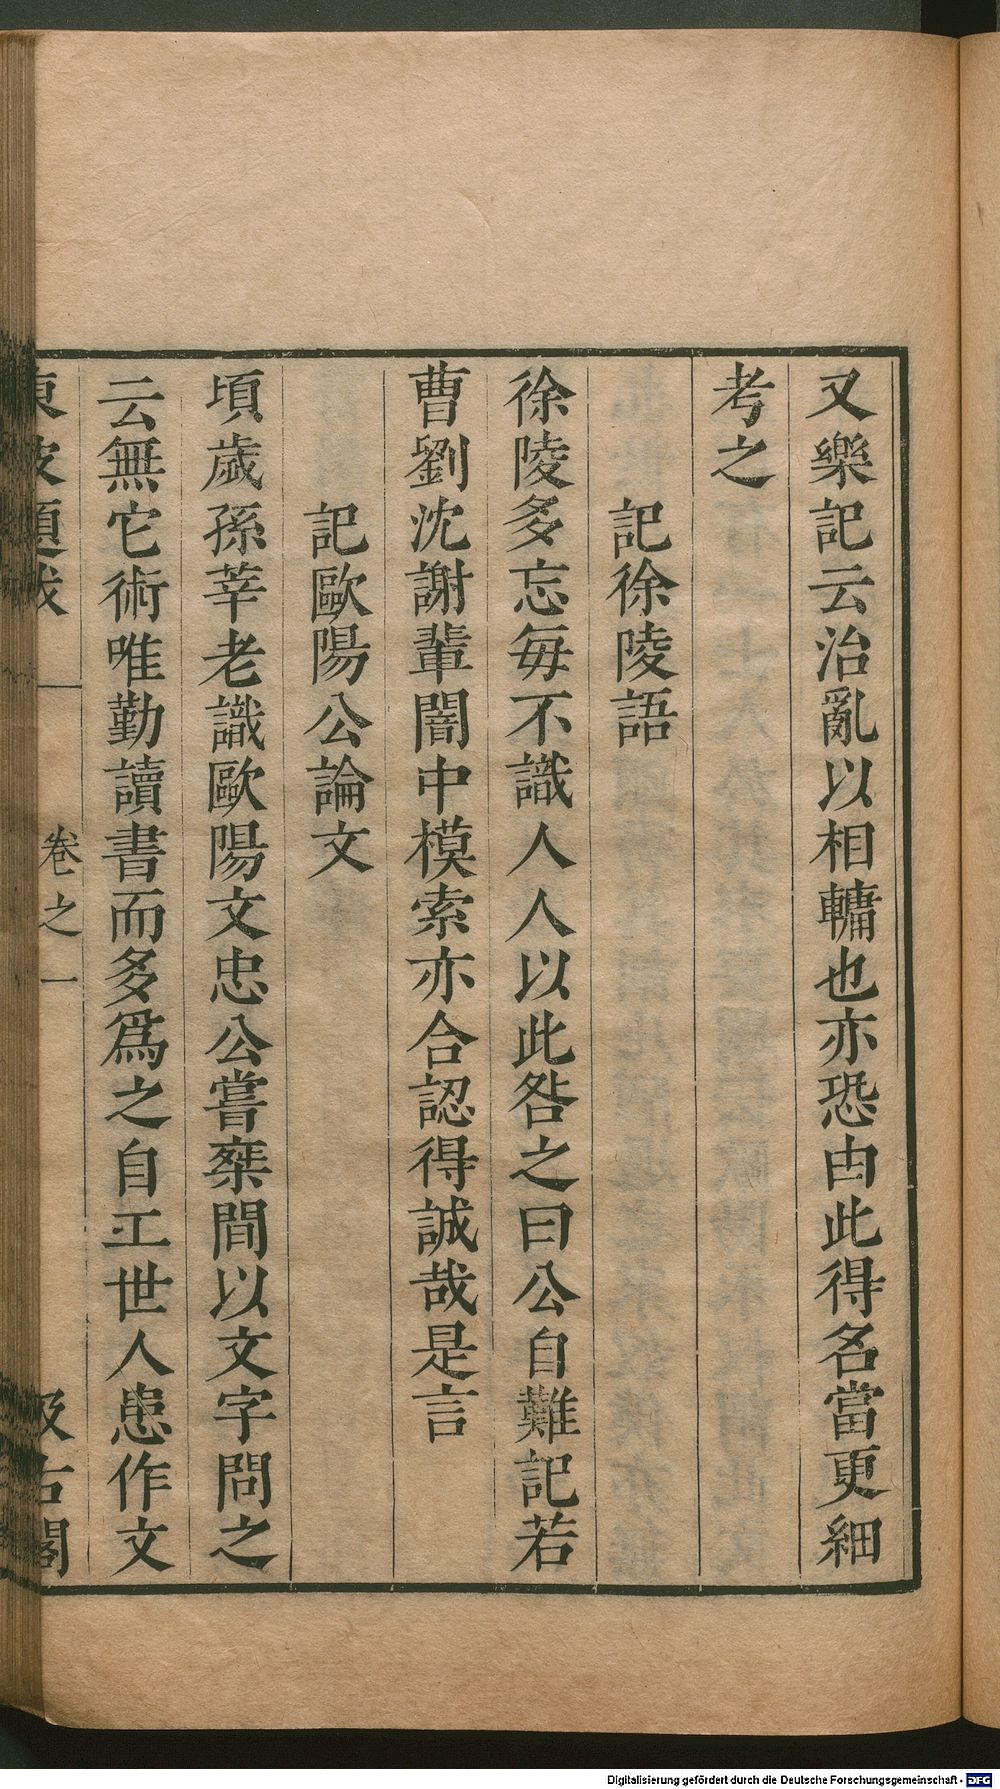 又樂記云治亂以相轉也亦恐由此得名當更細
考之
記徐陵語
徐陵多忘每不識人人以此咎之曰公自難記若
曹劉沈謝輩闇中模索亦合認得誠哉是言
記歐陽公論文
頃歲孫莘老識歐陽文忠公嘗椉間以文字問之
云無它術唯勤讀書而多爲之自工世人患作文
東坡題跋
卷之一
汲古閣
Digitalisierung gefördert durch die Deutsche Forschungsgemeinschaft - DFG